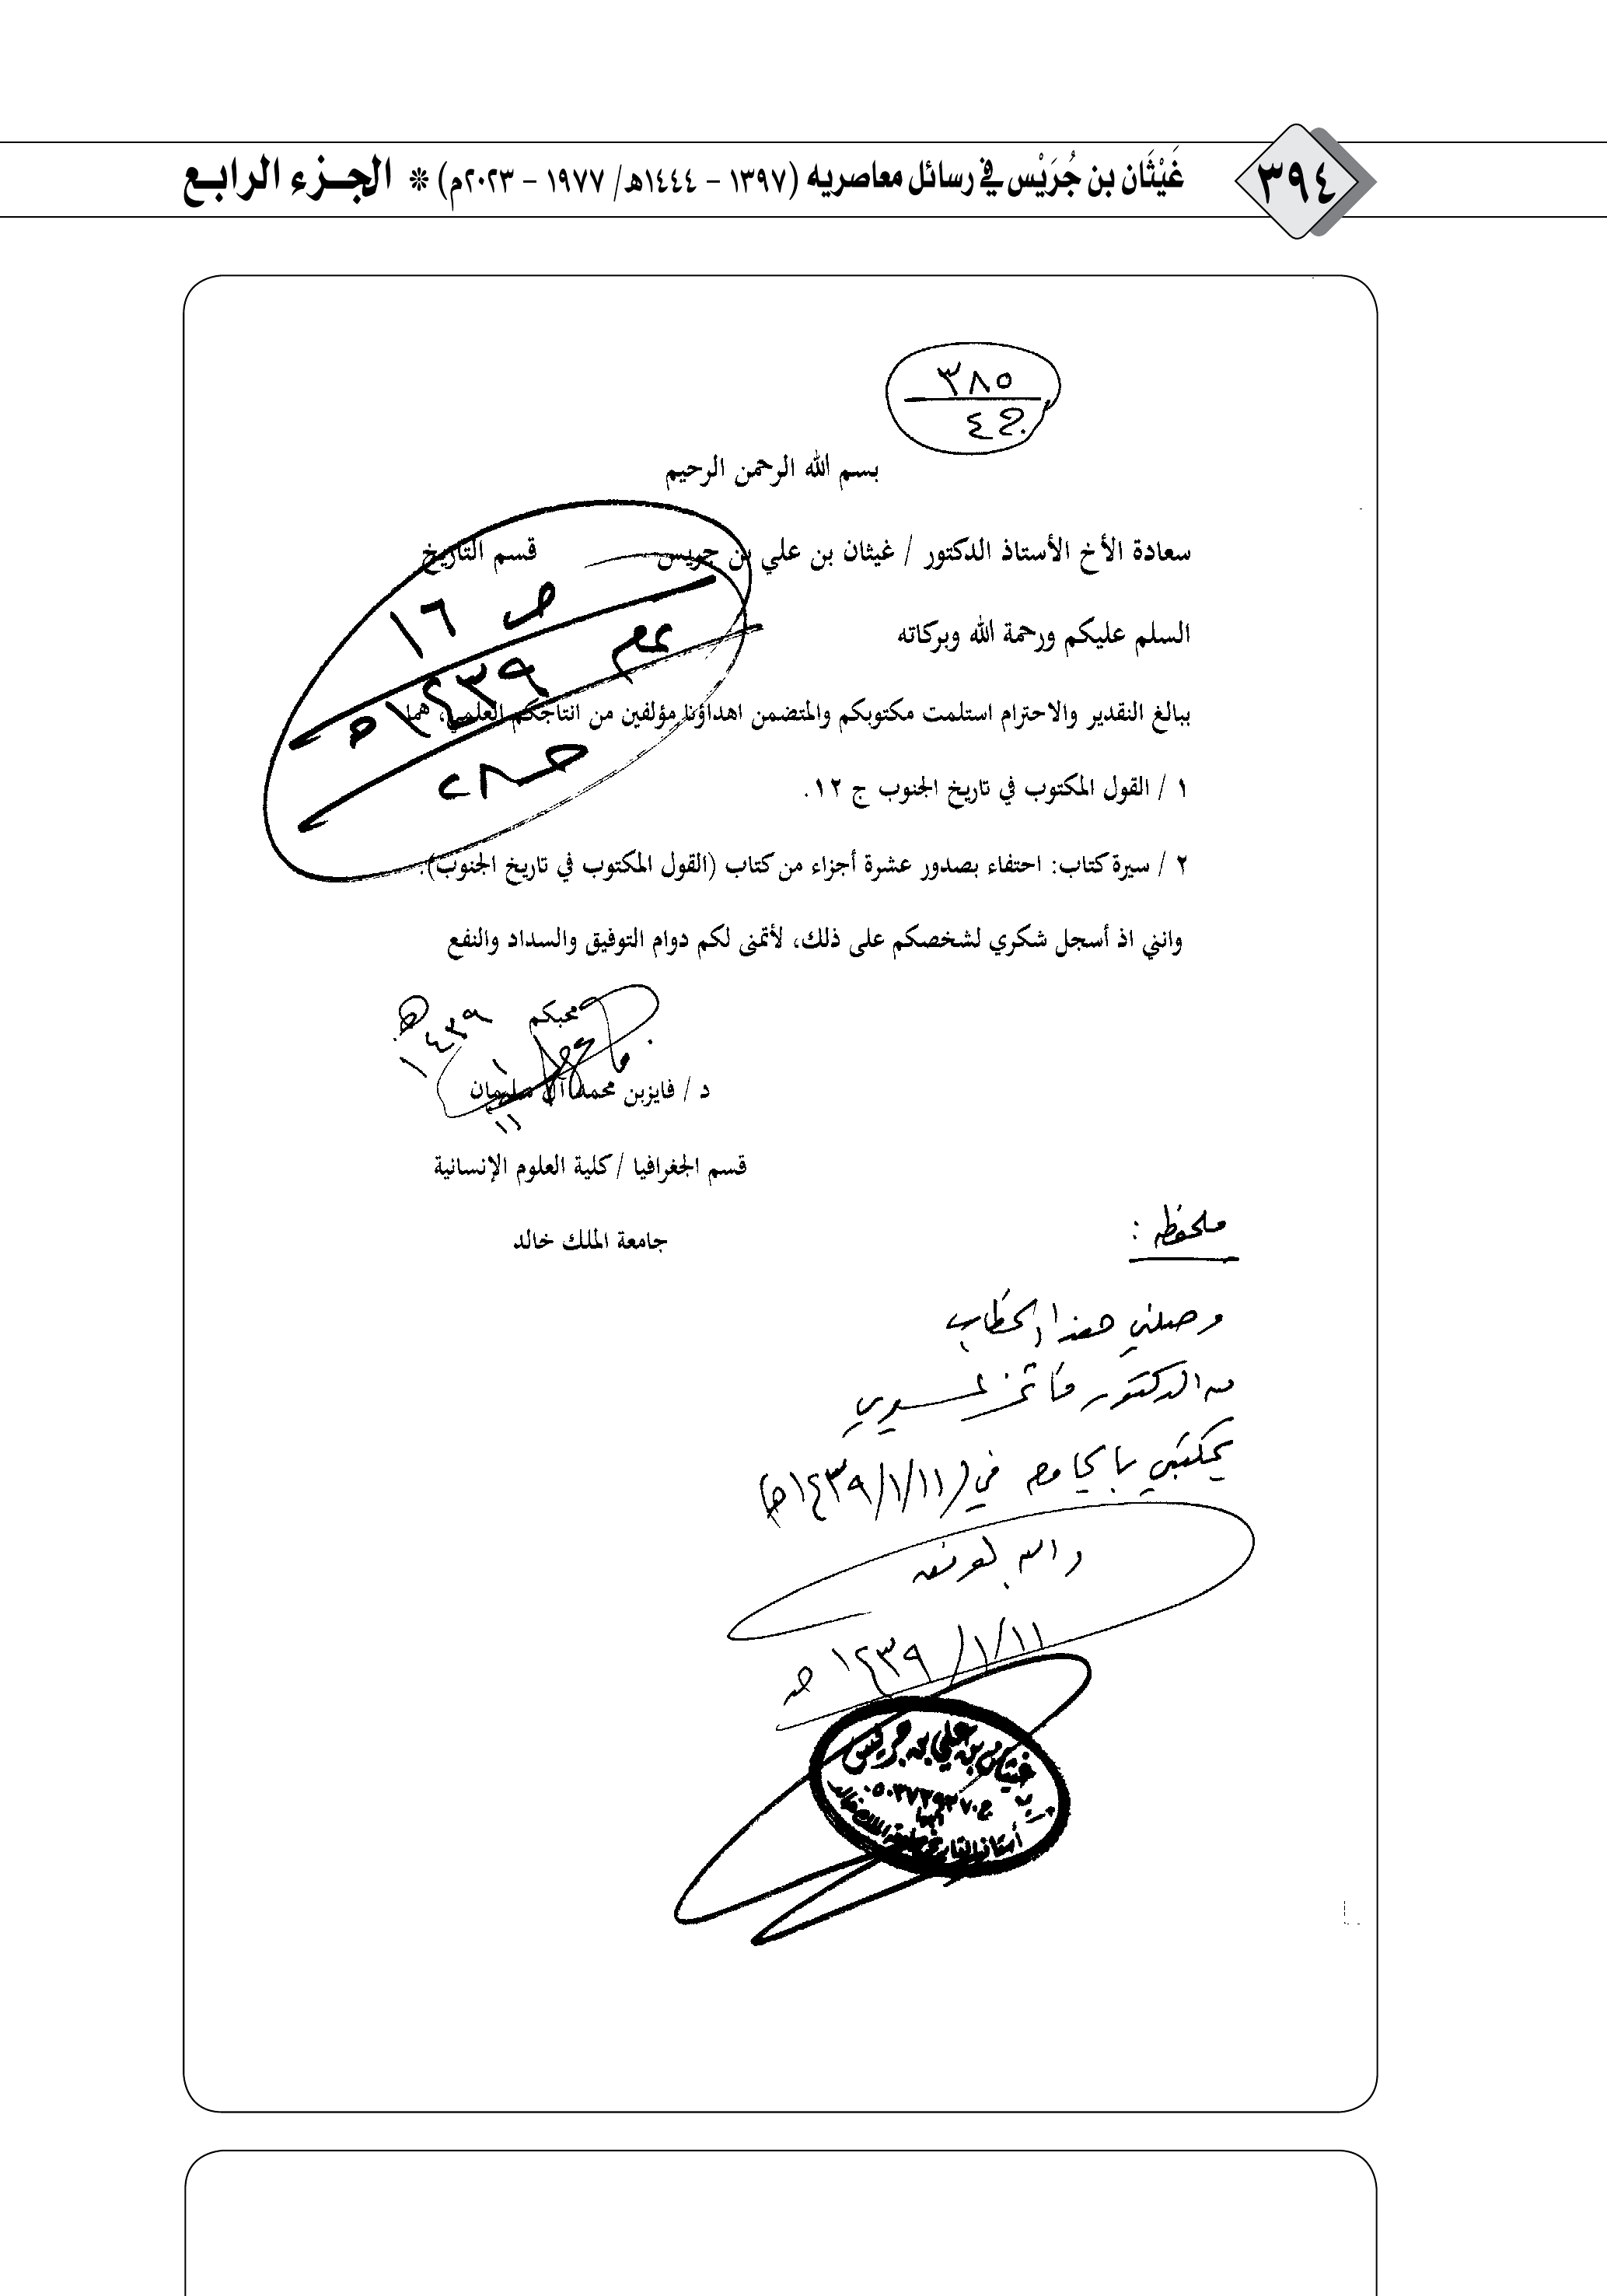 ٣٩٤
غَيْثَان بن جُرَيْس في رسائل معاصريه (١٣٩٧ - ١٤٤٤هـ/ ١٩٧٧ - ٢٠٢٣م) * الجزء الرابع
٣٨٥
ج٤
بسم الله الرحمن الرحيم
سعادة الأخ الأستاذ الدكتور / غيثان بن علي بن جريس قسم التاريخ
ص ١٦
السلم عليكم ورحمة الله وبركاته
١٤٣٩هـ
ببالغ التقدير والاحترام استلمت مكتوبكم والمتضمن اهداؤنا مؤلفين من انتاجكم العلمي، هما
١ / القول المكتوب في تاريخ الجنوب ج ١٢.
٢ / سيرة كتاب: احتفاء بصدور عشرة أجزاء من كتاب (القول المكتوب في تاريخ الجنوب).
وانني اذ أسجل شكري لشخصكم على ذلك، لأتمنى لكم دوام التوفيق والسداد والنفع
محبكم
١٤٣٩هـ
د / فايزبن محمد آل سليمان
قسم الجغرافيا / كلية العلوم الإنسانية
جامعة الملك خالد
ملحظه :
وصلني هذا الخطاب
من الدكتور فائز عسيري
بمكتبي بالجامعه في (١٤٣٩/١/١١هـ)
والله الموفق
١٤٣٩/١/١١هـ
غيثان بن علي بن جريس
أبها
أستاذ التاريخ بجامعة الملك خالد